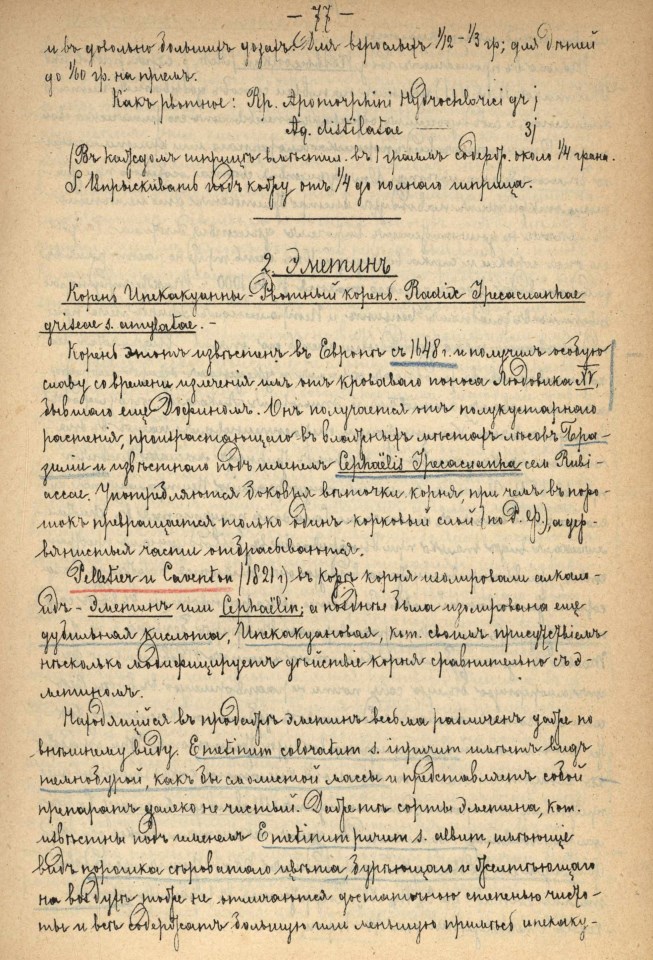 — 77 —
и въ довольно большихъ дозахъ. Для взрослыхъ 1/12 – 1/3 гр; для дѣтей
до 1/60 гр. на пріемъ.
Какъ рвотное: Rp. Apomorphini Hydrochlorici gr j
Aq. distilatae — 3j
(Въ каждомъ шприцѣ вмѣстим. въ 1 граммъ содерж. около 1/4 грана.
S. Впрыскивать подъ кожу отъ 1/4 до полнаго шприца.
2. Эметинъ
Корень Ипекакуанны – Рвотный корень. Radix Ipecacuanhae
griseae s. amylatae. –
Корень этотъ извѣстенъ въ Европѣ съ 1648 г. и получилъ особую
славу со времени излеченія имъ отъ кроваваго поноса Людовика XIV,
бывшаго еще Дофиномъ. Онъ получается отъ полукустарнаго
растенія, произрастающаго въ влажныхъ мѣстахъ лѣсовъ Бра-
зиліи и извѣстнаго подъ именемъ Cephaëlis Ipecacuanha сем Rubi-
aceae. Употребляются боковыя вѣточки корня, при чемъ въ поро-
шокъ превращается только одинъ корковый слой (по Р. Ф.), а дер-
вянистыя части отбрасываются.
Pelletier и Caventon (1821 г) въ корѣ корня изолировали алкало-
идъ – Эметинъ или Cephaëlin; а позднѣе была изолирована еще
дубильная кислота, Ипекакуановая, кот. своимъ присутствіемъ
нѣсколько модифицируетъ дѣйствіе корня сравнительно съ э-
метиномъ.
Находящійся въ продажѣ эметинъ весьма различенъ даже по
внѣшнему виду. Emetinum coloratum s. impurum имѣетъ видъ
темнобурой, какъ бы смолистой массы и представляетъ собой
препаратъ далеко не чистый. Даже тѣ сорты эметина, кот.
извѣстны подъ именемъ Emetinum purum s. album, имѣющіе
видъ порошка сѣроватаго цвѣта, бурѣющаго и желтѣющаго
на воздухѣ, тоже не отличаются достаточною степенью чисто-
ты и всѣ содержатъ большую или меньшую примѣсь ипекаку-